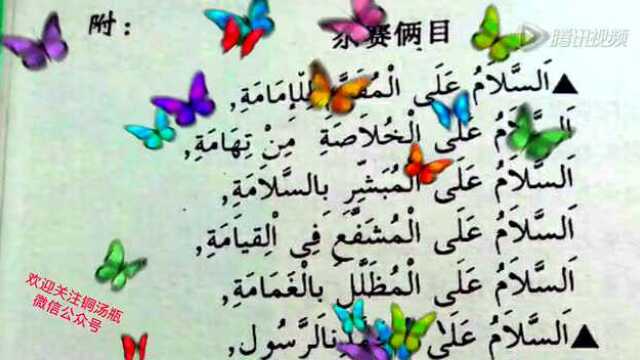 附：
赛俩目
腾讯视频
▲اَلسَّلَامُ عَلَى الْمُقَدَّمِ لِلْإِمَامَةِ,
اَلسَّلَامُ عَلَى الْخُلَاصَةِ مِنْ تِهَامَةِ,
اَلسَّلَامُ عَلَى الْمُبَشِّرِ بِالسَّلَامَةِ,
اَلسَّلَامُ عَلَى الْمُشَفَّعِ فِي الْقِيَامَةِ,
اَلسَّلَامُ عَلَى الْمُظَلَّلِ بِالْغَمَامَةِ,
▲اَلسَّلَامُ عَلَى الرَّسُولِ,
欢迎关注铜汤瓶
微信公众号